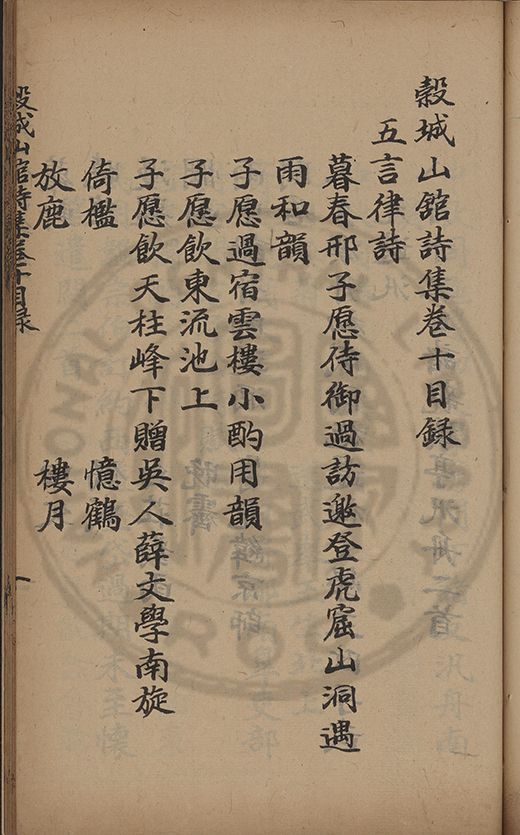 穀城山舘詩集卷十目録
五言律詩
暮春邢子愿侍御過訪邀登虎窟山洞遇
雨和韻
子愿過宿雲樓小酌用韻
子愿飲東流池上
子愿飲天柱峰下贈吳人薛文學南旋
倚檻 憶鶴
放鹿 樓月
穀城山舘詩集卷十目録 一